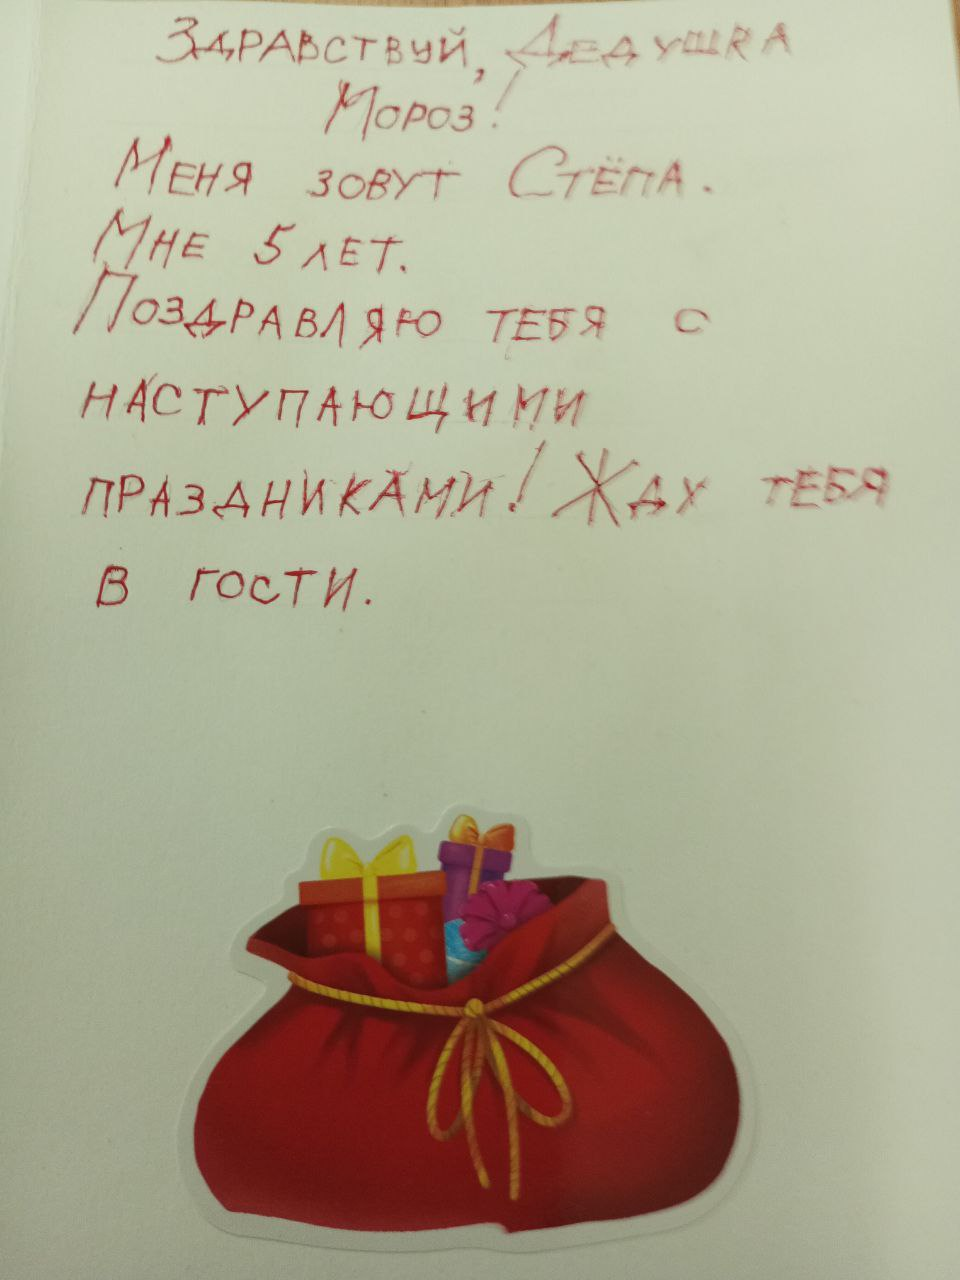 Здравствуй, Дедушка
Мороз!
Меня зовут Стёпа.
Мне 5 лет.
Поздравляю тебя с
наступающими
праздниками! Жду тебя
в гости.